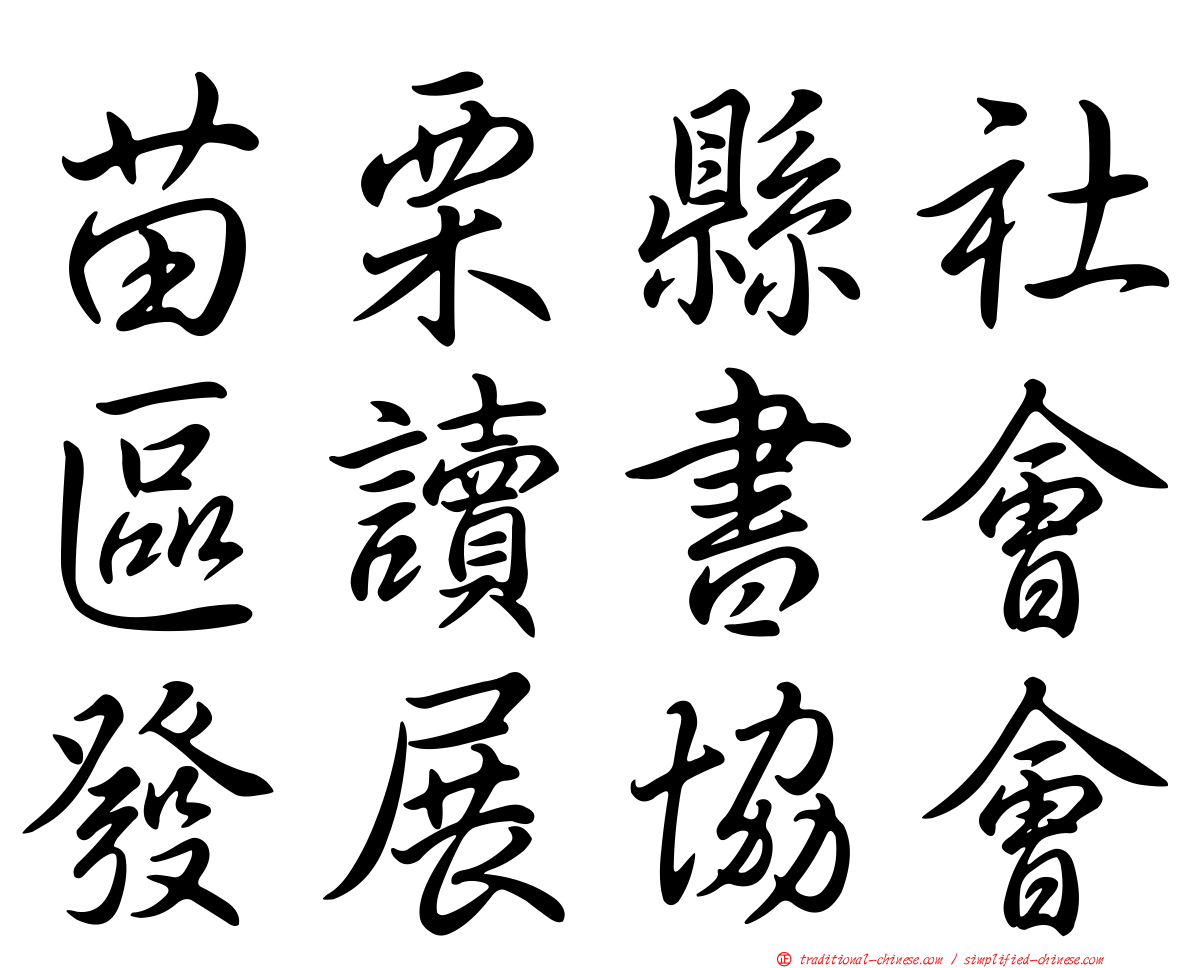 苗栗縣社
區讀書會
發展協會
㊣ traditional-chinese.com / simplified-chinese.com